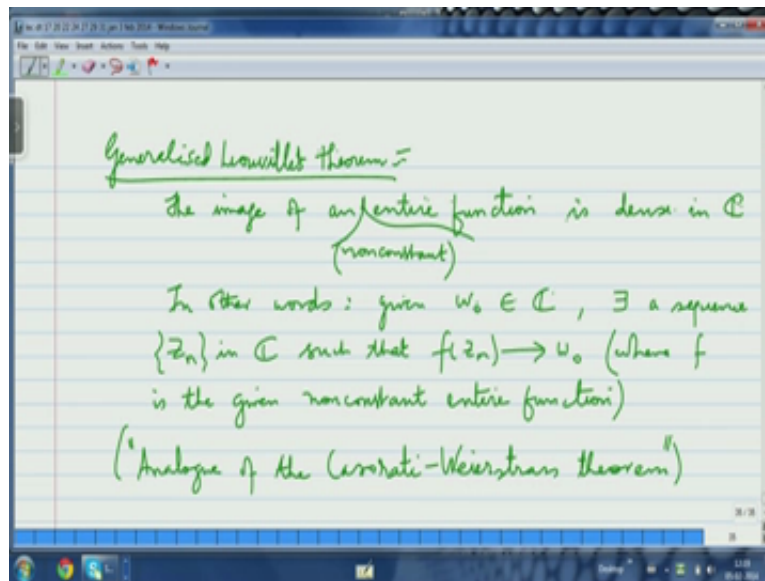 File Edit View Insert Actions Tools Help
Generalised Liouville's theorem :-
The image of an entire function is dense in ℂ
(nonconstant)
In other words : given w₀ ∈ ℂ , ∃ a sequence
{zₙ} in ℂ such that f(zₙ) ⟶ w₀ (where f
is the given nonconstant entire function)
("Analogue of the Casorati-Weierstrass theorem")